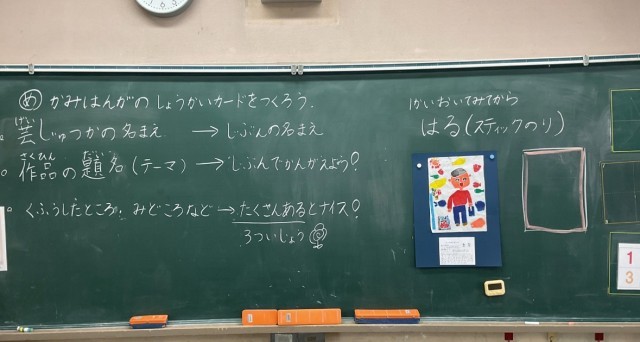 め かみはんがのしょうかいカードをつくろう.
げい
芸じゅつかの名まえ → じぶんの名まえ
さくひん だい
作品の題名(テーマ) → じぶんでかんがえよう?
くふうしたところ、みどころなど→たくさんあるとナイス?
3ついじょう
かいおいてみてから
はる(スティックのり)
1
3